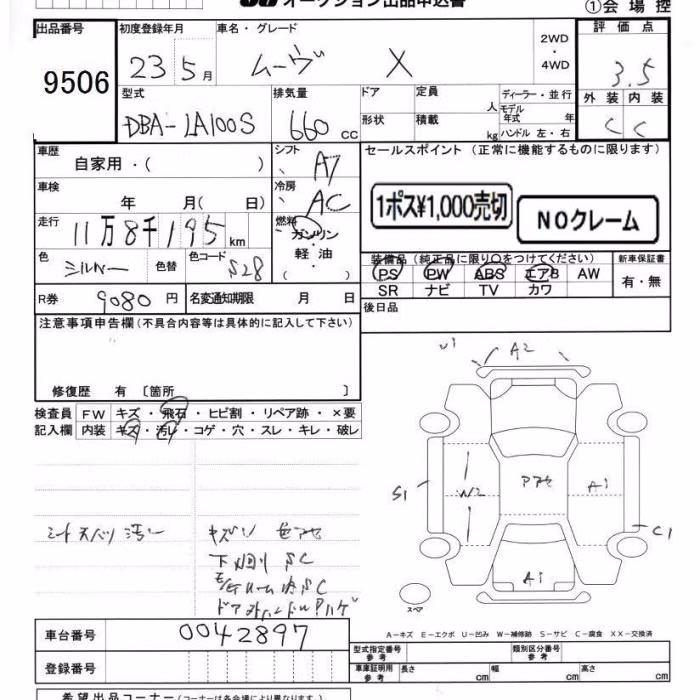 オークション出品申込書
①会場控
出品番号 初度登録年月 車名・グレード 2WD・4WD 評価点
9506 23年5月 ムーヴ X 3.5
型式 排気量 ドア 定員 人 ディーラー・並行 外装 内装
DBA-LA100S 660cc 形状 積載 kg モデル年式 年 ハンドル 左・右 C C
車歴 自家用・( ) シフト AT セールスポイント(正常に機能するものに限ります)
車検 年 月( 日) 冷房 AC
1ポス¥1,000売切 NOクレーム
走行 11万8千195km 燃料 ガソリン・軽油
色 シルバー 色替 色コード S28
装備品(純正品に限り○をつけてください) 新車保証書
PS PW ABS エアB AW 有・無
SR ナビ TV カワ
R券 9080円 名変通知期限 月 日 後日品
注意事項申告欄(不具合内容等は具体的に記入して下さい)
修復歴 有 〔箇所 〕
検査員 FW キズ・飛石・ヒビ割・リペア跡・×要
記入欄 内装 キズ・汚レ・コゲ・穴・スレ・キレ・破レ
U1 A2
S1 W2 A1
C1
A1
スペア
シートスパッツ汚レ
下廻りSC
A-キズ E-エクボ U-凹み W-補修跡 S-サビ C-腐食 XX-交換済
車台番号 0042897
登録番号
型式指定番号 参考 類別区分番号 参考
車庫証明用 参考 長さ cm 幅 cm 高さ cm
希望出品コーナー(コーナーは各会場により異なります)